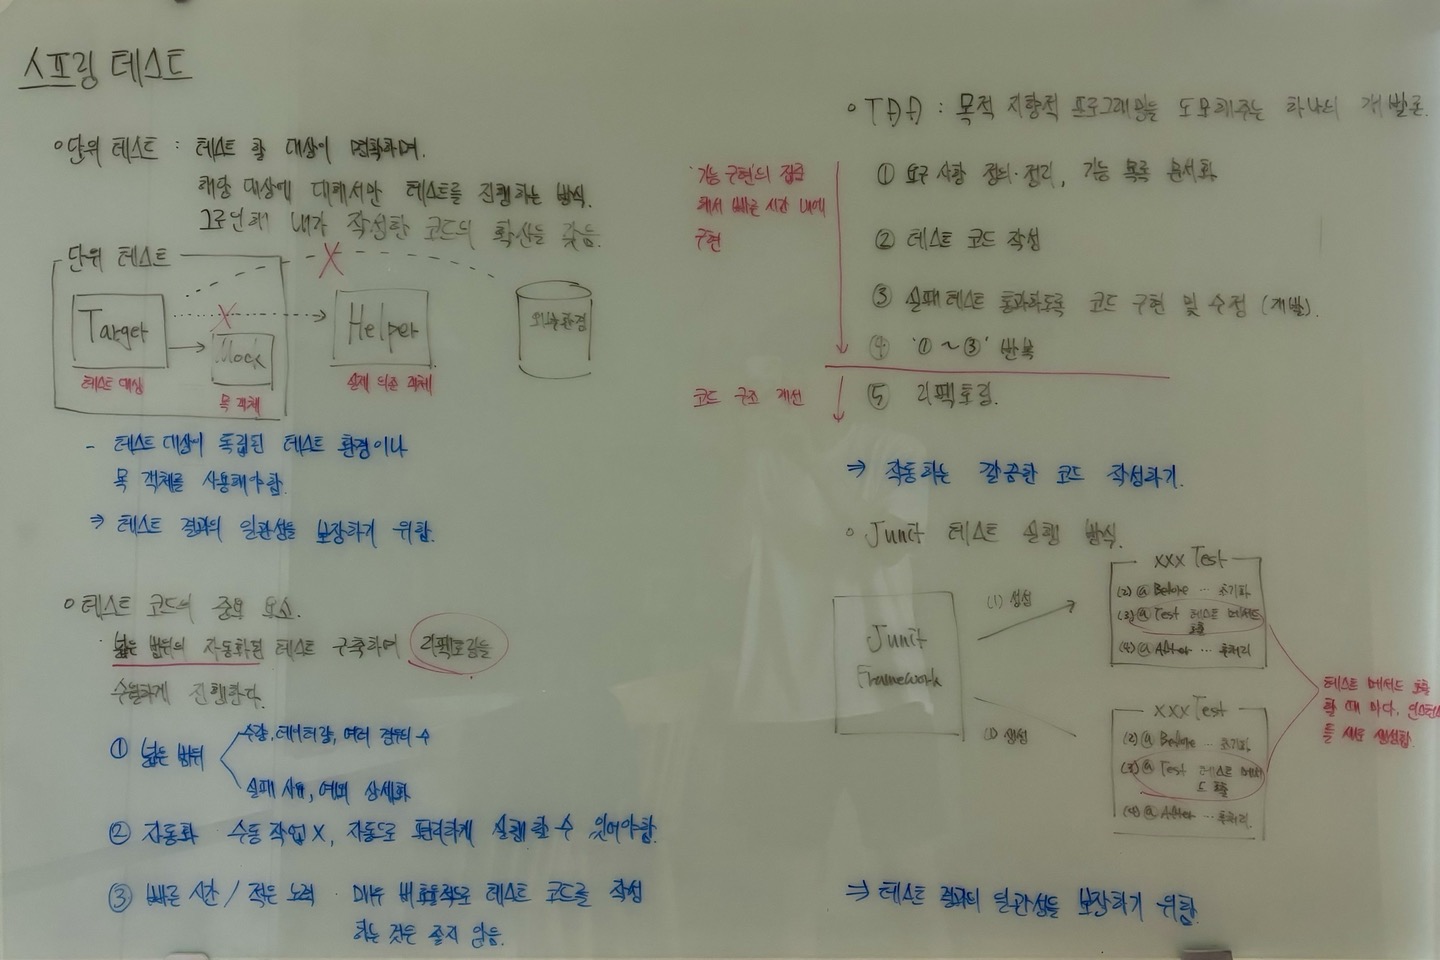 스프링 테스트
○ 단위 테스트 : 테스트 할 대상이 명확하며,
해당 대상에 대해서만 테스트를 진행하는 방식.
그로인해 내가 작성한 코드의 확신을 갖음.
단위 테스트
Target
테스트 대상
Mock
목 객체
Helper
실제 의존 객체
외부환경
- 테스트 대상이 독립된 테스트 환경이나
목 객체를 사용해야함.
⇒ 테스트 결과의 일관성을 보장하기 위함.
○ 테스트 코드의 중요 요소.
· 넓은 범위의 자동화된 테스트 구축하며 리팩토링을
수월하게 진행한다.
① 넓은 범위
수량, 데이터량, 여러 경우의 수
실패 사유, 예외 상세화
② 자동화 수동 작업 X, 자동으로 편리하게 실행 할 수 있어야함.
③ 빠른 시간 / 적은 노력 · 매우 비효율적으로 테스트 코드를 작성
하는 것은 좋지 않음.
○ TDD : 목적 지향적 프로그래밍을 도모해주는 하나의 개발론.
'기능 구현'의 집중
해서 빠른 시간 내에
구현
① 요구 사항 정의·정리, 기능 목록 문서화
② 테스트 코드 작성
③ 실패 테스트 통과하도록 코드 구현 및 수정 (개발).
④ '①~③' 반복
코드 구조 개선
⑤ 리팩토링.
⇒ 작동하는 깔끔한 코드 작성하기.
○ Junit 테스트 실행 방식.
Junit
Framework
(1) 생성
(1) 생성
xxx Test
(2) @ Before ... 초기화
(3) @ Test 테스트 메서드
호출
(4) @ After ... 후처리
xxx Test
(2) @ Before ... 초기화
(3) @ Test 테스트 메서
드 호출
(4) @ After ... 후처리
테스트 메서드 호출
할 때 마다, 인스턴스
를 새로 생성함.
⇒ 테스트 결과의 일관성을 보장하기 위함.